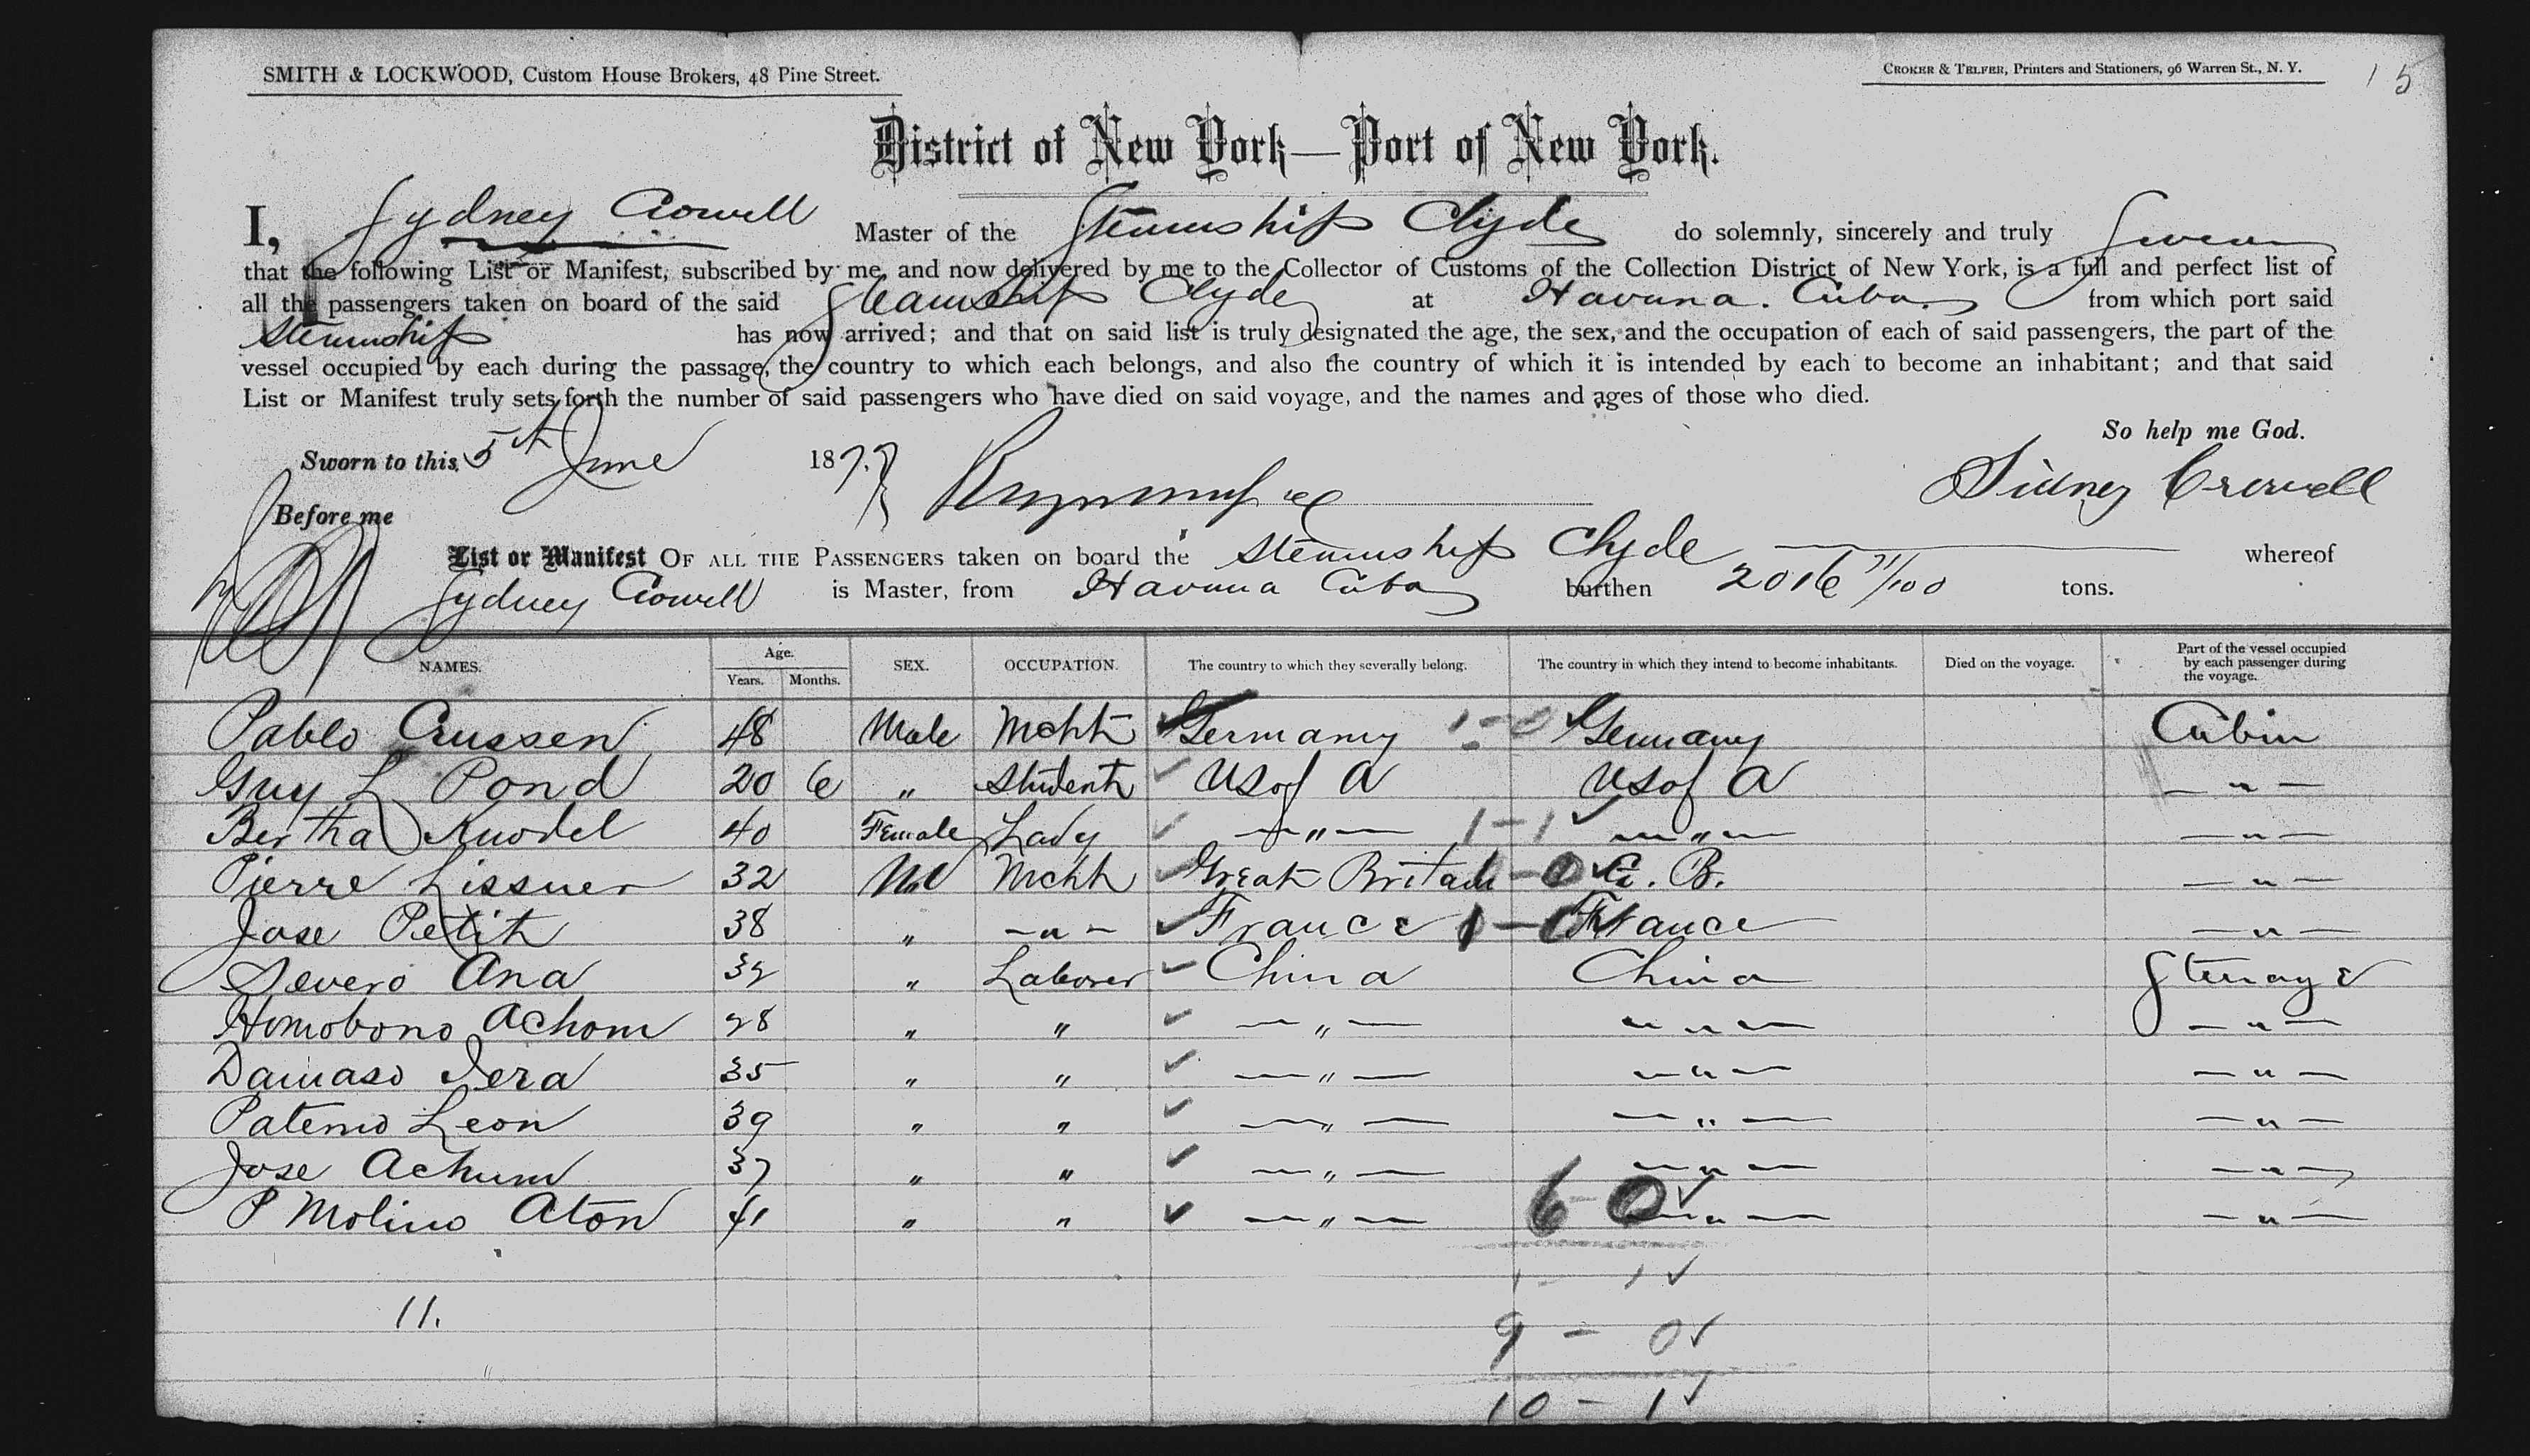 SMITH & LOCKWOOD, Custom House Brokers, 48 Pine Street.
CROKER & TELFER, Printers and Stationers, 96 Warren St., N. Y.
15
District of New York—Port of New York.
I, Sydney Crowell Master of the Steamship Clyde do solemnly, sincerely and truly Swear
that the following List or Manifest, subscribed by me, and now delivered by me to the Collector of Customs of the Collection District of New York, is a full and perfect list of
all the passengers taken on board of the said Steamship Clyde at Havana. Cuba. from which port said
Steamship has now arrived; and that on said list is truly designated the age, the sex, and the occupation of each of said passengers, the part of the
vessel occupied by each during the passage, the country to which each belongs, and also the country of which it is intended by each to become an inhabitant; and that said
List or Manifest truly sets forth the number of said passengers who have died on said voyage, and the names and ages of those who died.
So help me God.
Sworn to this 5th June 187
Sidney Crowell
Before me
List or Manifest OF ALL THE PASSENGERS taken on board the Steamship Clyde whereof
Sydney Crowell is Master, from Havana Cuba burthen 2016 71/100 tons.
NAMES. Age. Years. Months. SEX. OCCUPATION. The country to which they severally belong. The country in which they intend to become inhabitants. Died on the voyage. Part of the vessel occupied by each passenger during the voyage.
Pablo Crussen 48 Male Mcht Germany 1-0 Germany Cabin
Guy L Pond 20 6 " Student U S of A U S of A — " —
Bertha Knodel 40 Female Lady — " — 1-1 — " — — " —
Pierre Lissner 32 Ml Mcht Great Britain - 0 G. B. — " —
Jose Petit 38 " — " — France 1-0 France — " —
Severo Ana 32 " Laborer China China Steerage
Homobono Achom 28 " " — " — — " — — " —
Damaso Jera 35 " " — " — — " — — " —
Paterno Leon 39 " " — " — — " — — " —
Jose Achum 37 " " — " — — " — — " —
P Molino Aton 41 " " — " — 6 0 — " — — " —
1 - 1
11.
9 - 0
10 - 1